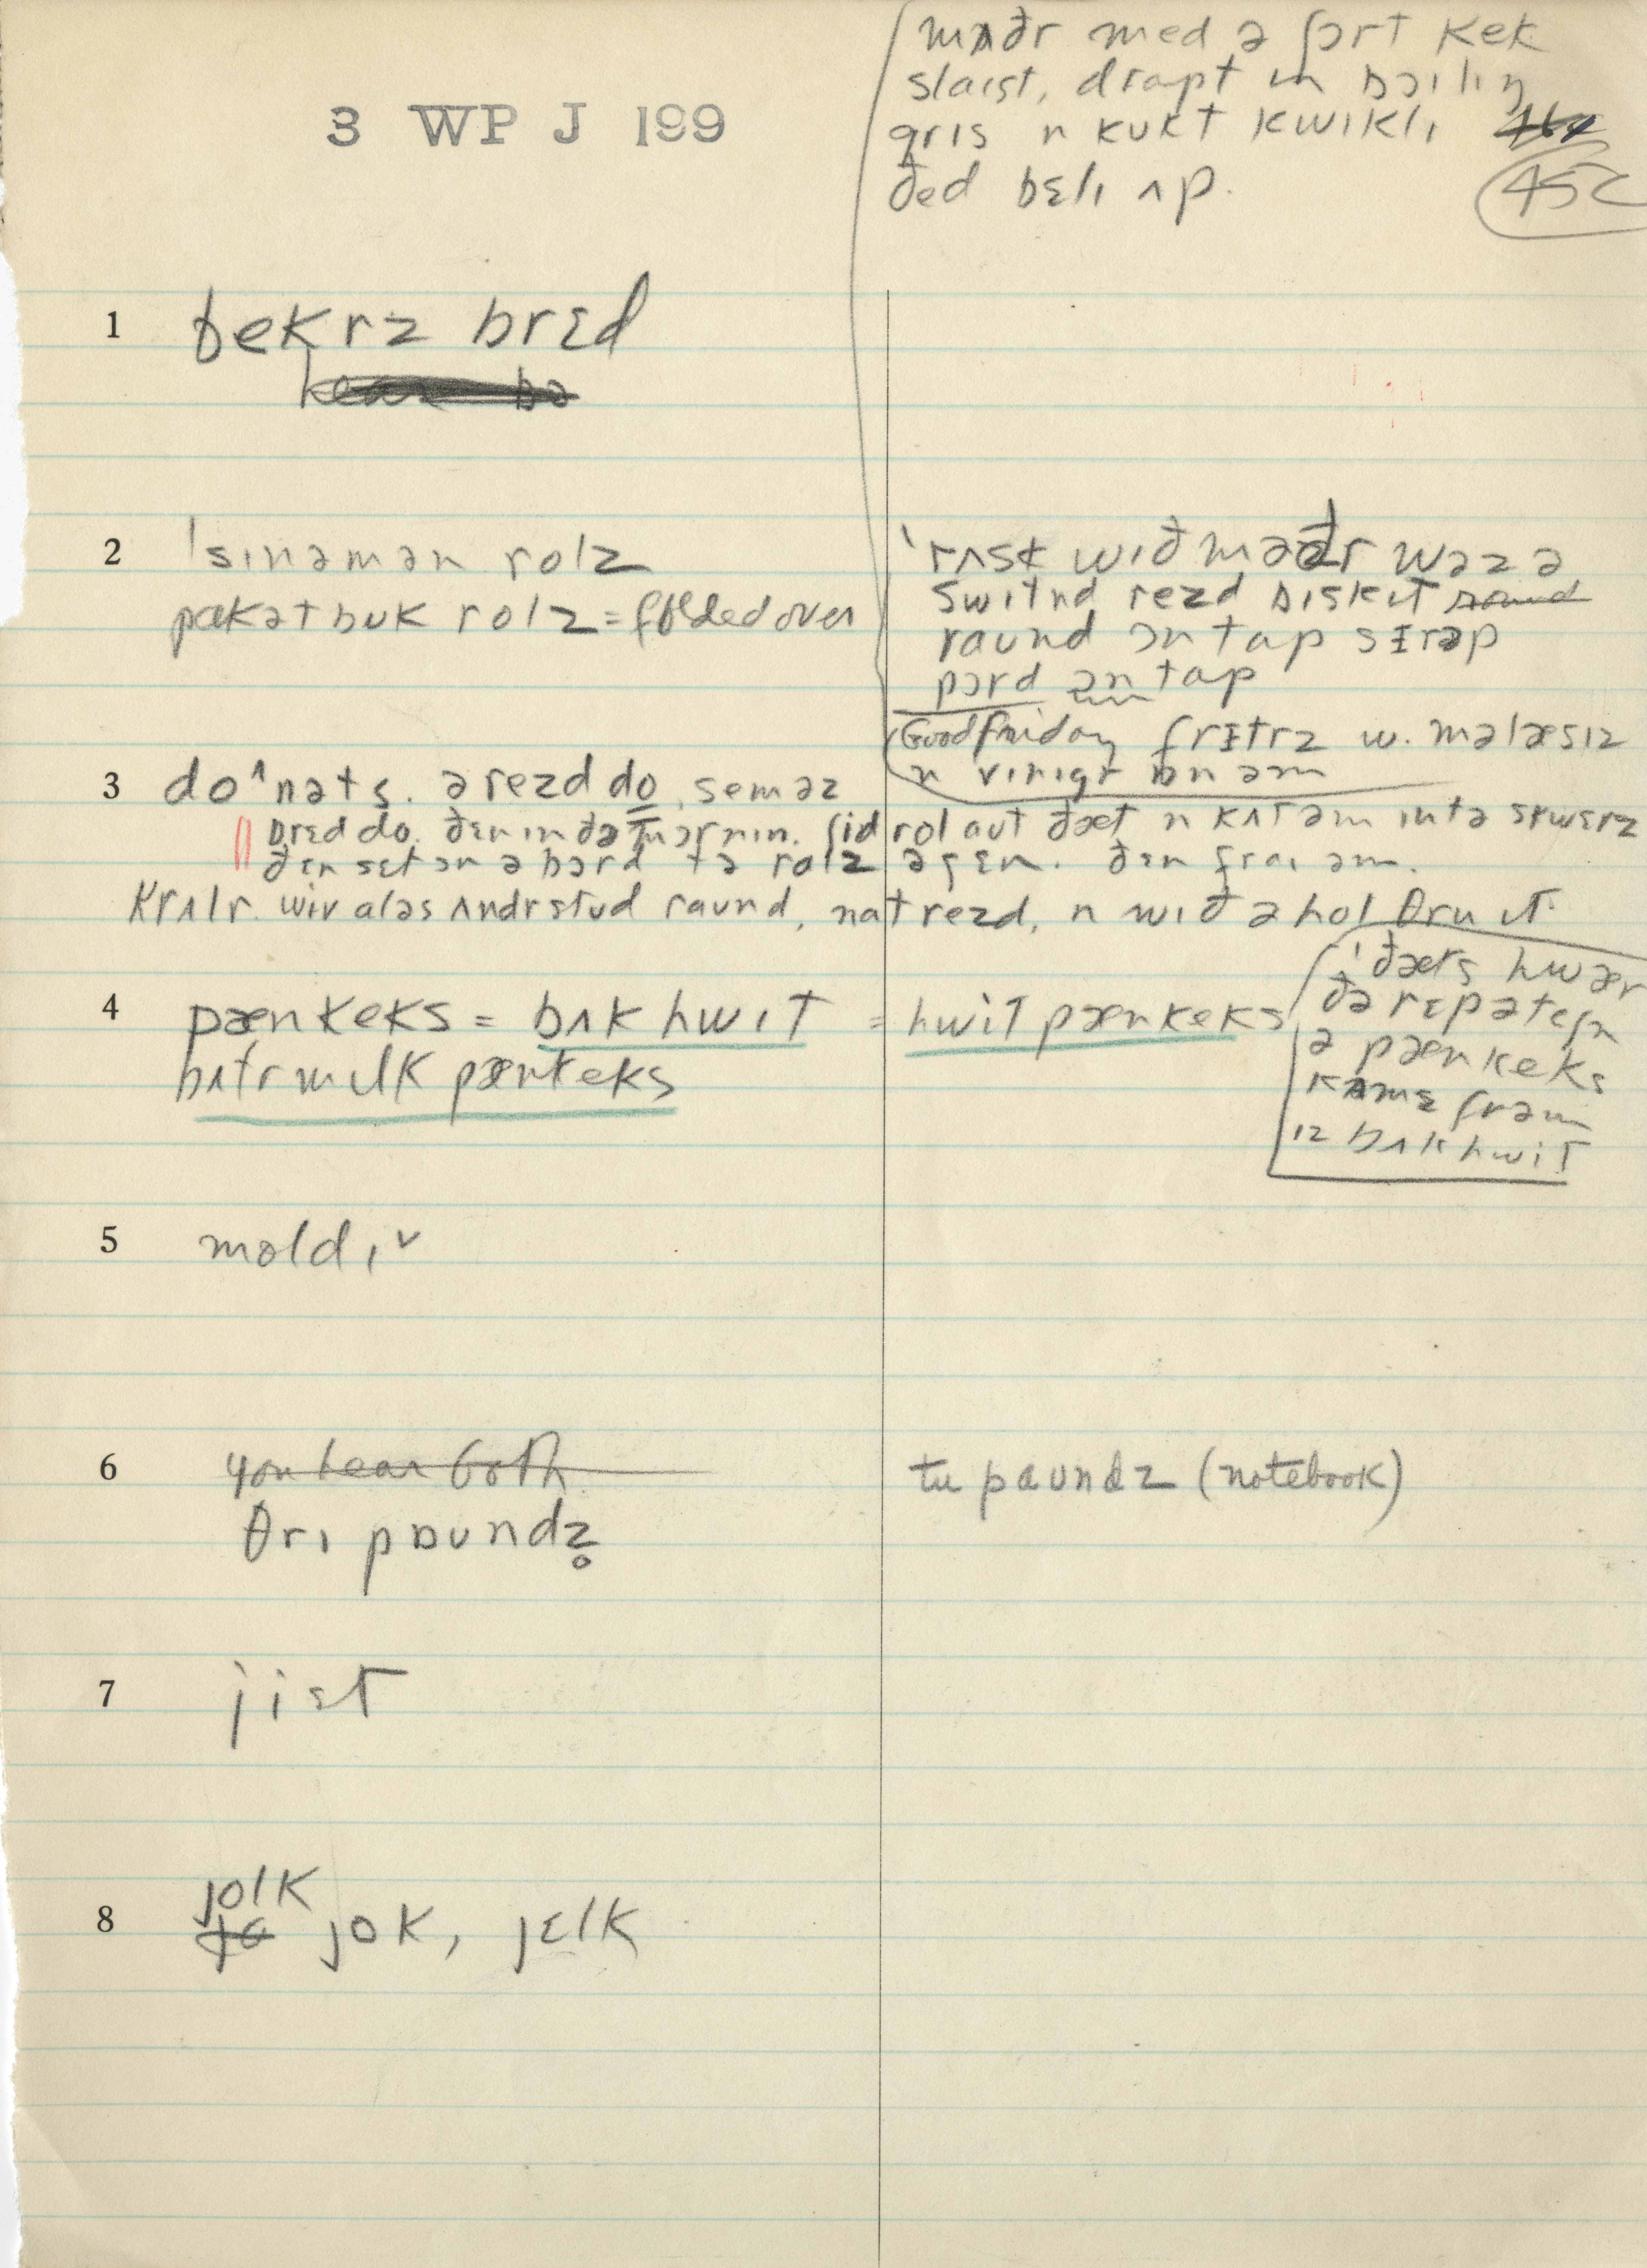 mʌðr med ə ʃɔrt kek
slaist, drapt in bɔilɪŋ
gris n kukt kwikli
ðed bɛlɪ ʌp.
3 WP J 199
45C
1 bekrz brɛd
2 'sɪnəmən rolz
pakət buk rolz = folded over
'rʌsk wɪð məðr wəz ə
switnd rezd bɪskɪt round
raund ɔn tap sɪrəp
pɔrd ɔn tap
Good friday frɪtrz w. məlæsɪz
n vɪnɪgr ɔn əm
3 do^nəts. ə rezd do, sem əz
brɛd do. ðɛn ɪn ðə mɔrnɪn. ʃid rol aut ðæt n kʌt əm ɪntə skwɛrz
ðɛn sɛt ɔn ə bɔrd tə rɑɪz əgɛn. ðɛn fraɪ əm.
krʌlr. wiv aləs ʌndrstud raund, nat rezd, n wɪð ə hol θru ɪt.
4 pænkeks = bʌk hwit = hwit pænkeks
bʌtrmɪlk pænkeks
'ðæts hwær
ðə rɛpəteʃn
ə pænkeks
kʌmz frəm
ɪz bʌkhwit
5 moldɪ ˅
6 you hear both
θrɪ paundz̥
tu paundz (notebook)
7 jist
8 jolk
jo jok, jɛlk